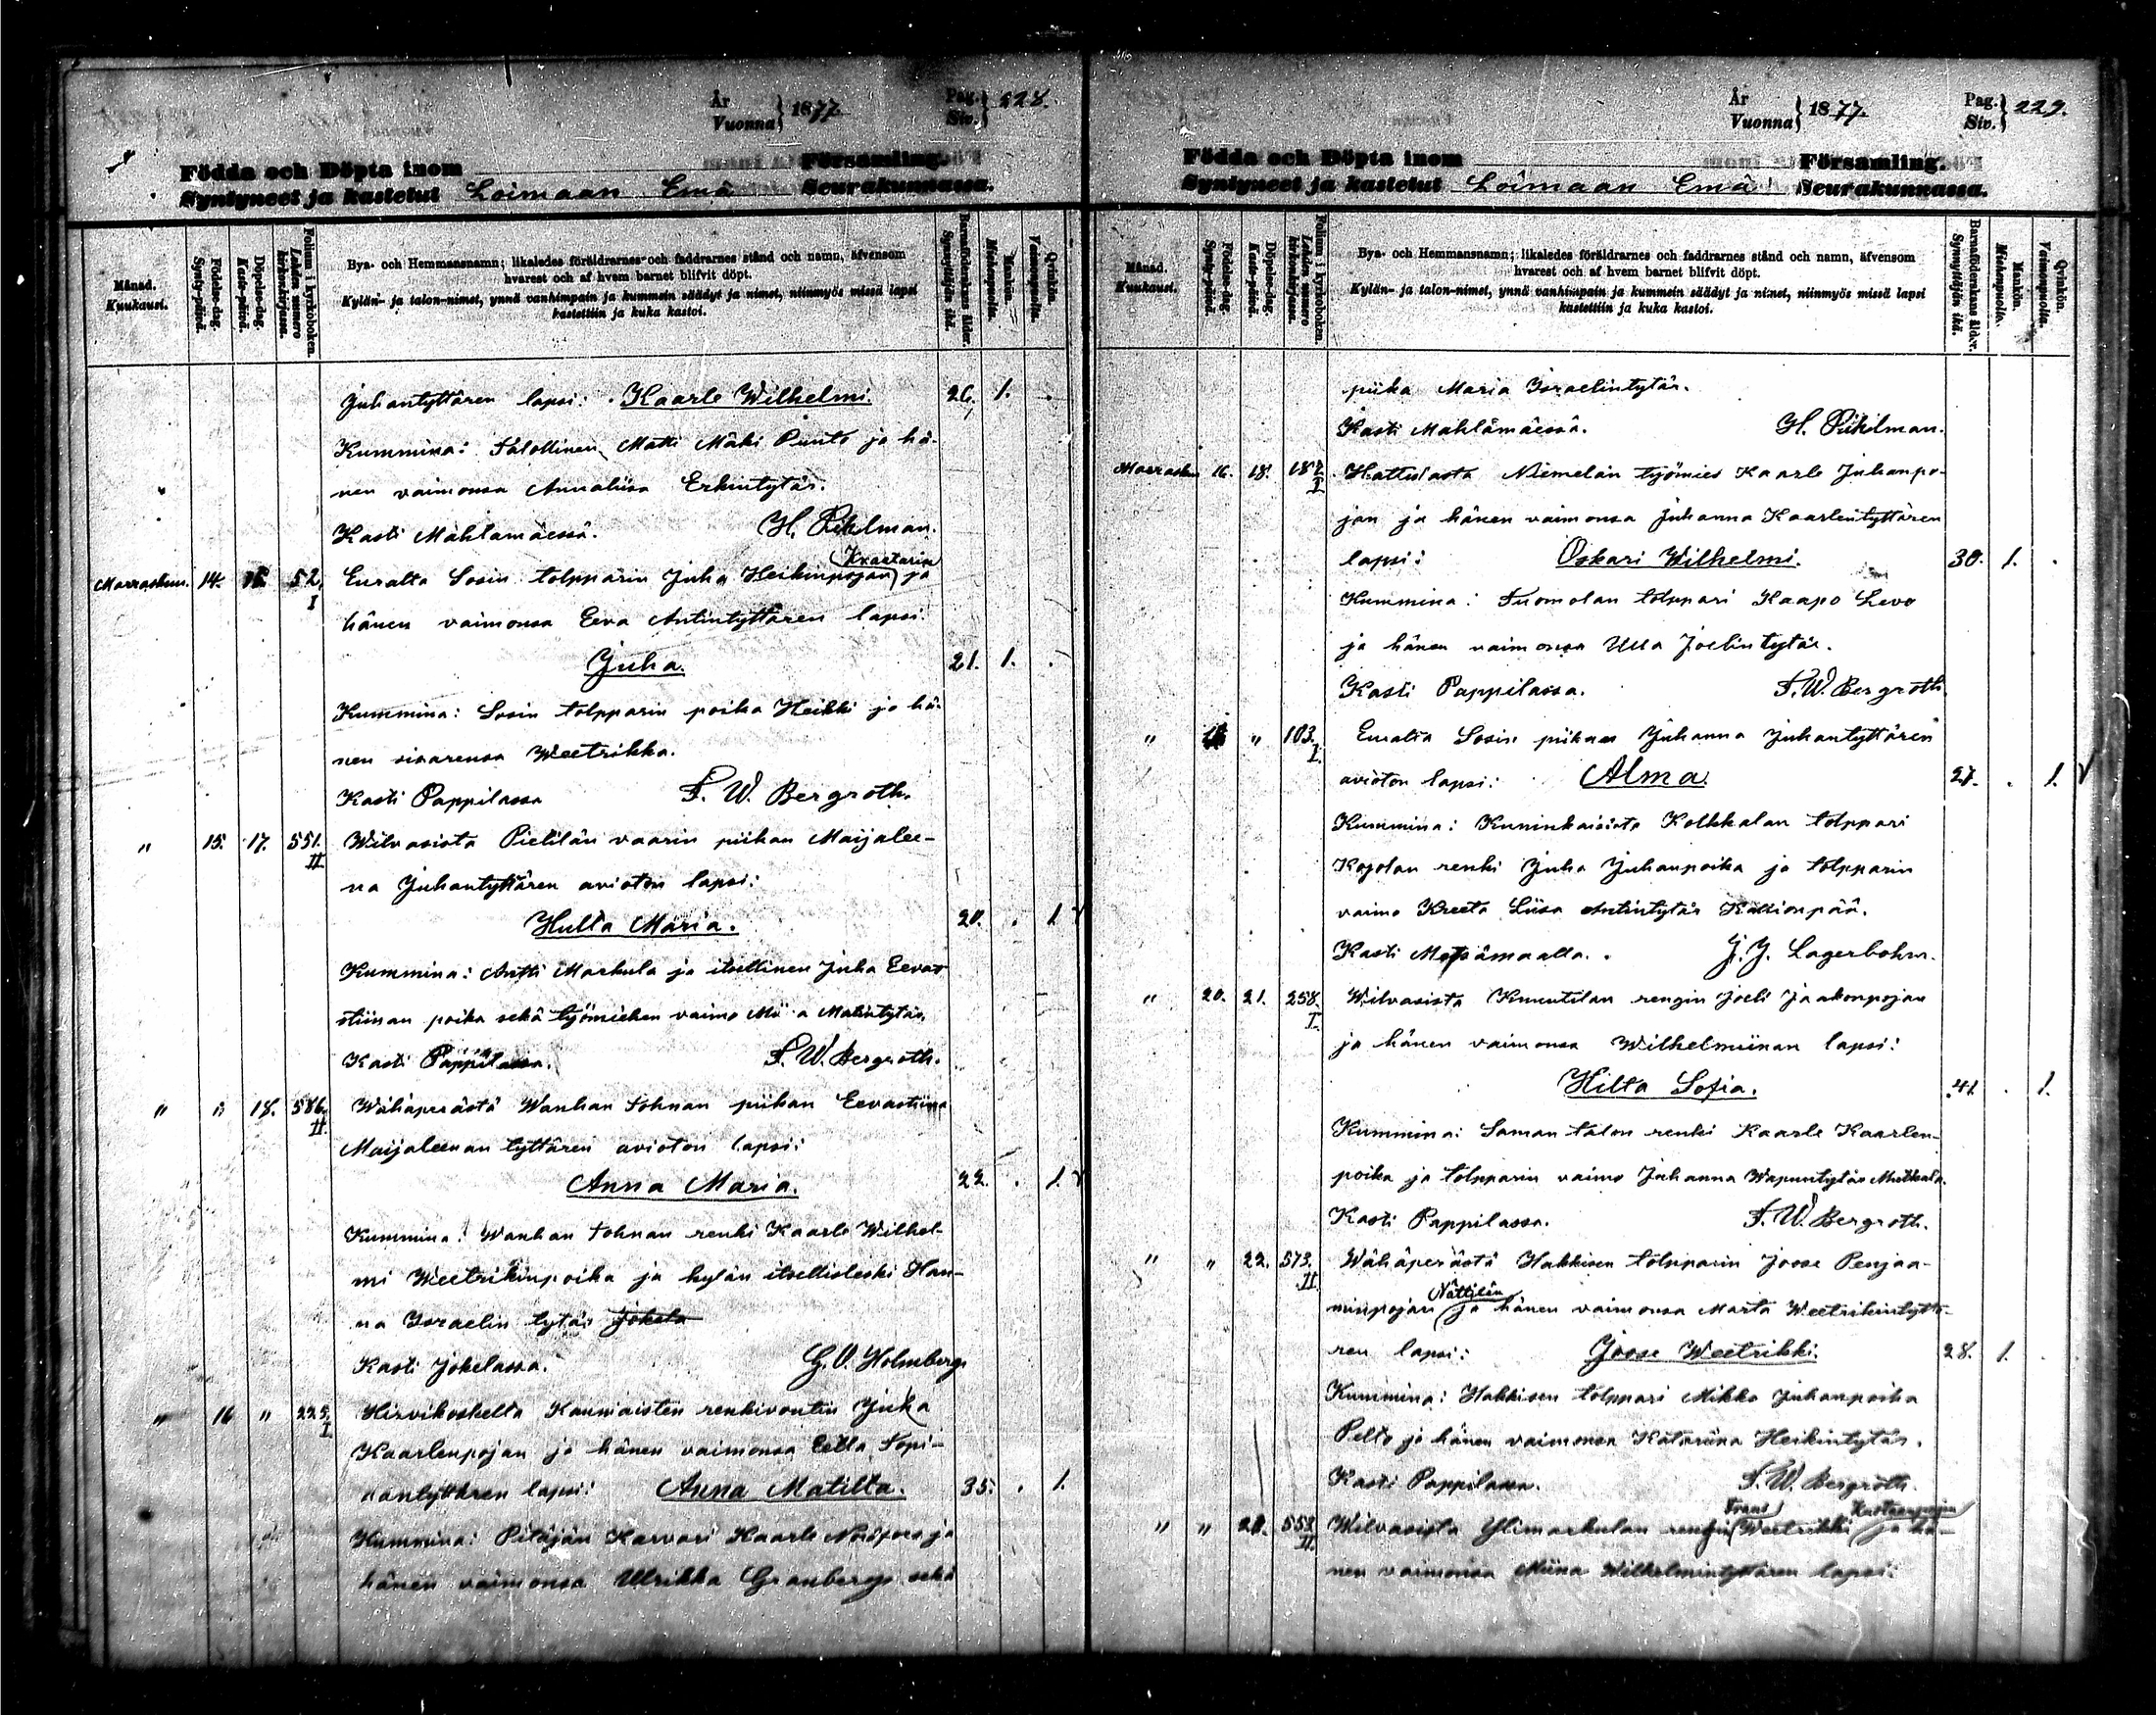 År
Vuonna } 1877.
Pag.
Siv. } 228.
Födda och Döpta inom Församling.
Syntyneet ja kastetut Loimaan Emä Seurakunnassa.
Månad.
Kuukausi.
Födelse-dag.
Synty-päivä.
Döpelse-dag.
Kaste-päivä.
Folium i kyrkoboken.
Lehden numero kirkonkirjassa.
Bya- och Hemmansnamn; likaledes föräldrarnes och faddrarnes stånd och namn, äfvensom
hvarest och af hvem barnet blifvit döpt.
Kylän- ja talon-nimet, ynnä vanhimpain ja kummein säädyt ja nimet, niinmyös missä lapsi
kastettiin ja kuka kastoi.
Barnaföderskans ålder.
Synnyttäjän ikä.
Mankön.
Miehenpuolia.
Qvinkön.
Vaimonpuolia.
Juhantyttären lapsi: Kaarle Wilhelmi. 26. 1.
Kummina: Itsellinen Matti Mäki Punto ja hä-
nen vaimonsa Annaliisa Erkintytär.
Kasti Mahlamäessä. H. Pihlman.
Marraskuu. 14. 52. I Euralta Sosin tolpparin Juha Heikinpojan ja
hänen vaimonsa Eeva Antintyttären lapsi:
Juha. 21. 1.
Kummina: Sosin tolpparin poika Heikki ja hä-
nen sisarensa Weetrikka.
Kasti Pappilassa F. W. Bergroth.
" 15. 17. 551. II Wilvasista Pietilän vaarin piikan Maijalee-
na Juhantyttären avioton lapsi:
Hulta Maria. 20. . 1. V
Kummina: Antti Markula ja itsellinen Juha Eevas-
stiinan poika sekä työmiehen vaimo Matintytär,
Kasti Pappilassa. F. W. Bergroth.
" " 18. 586. II. Wähäperästä Wanhan Tohnan piikan Eevastiina
Maijaleenan tyttären avioton lapsi:
Anna Maria. 22. . 1. V
Kummina: Wanhan Tohnan renki Kaarle Wilhel-
mi Weetrikinpoika ja kylän itsellisleski Han-
na Israelin tytär Jokela
Kasti Jokelassa. G. O. Holmberg.
" 16 " 225. I Hirvikoskelta Kauniaisten renkivoutin Juha
Kaarlenpojan ja hänen vaimonsa Eella
lapsi: Anna Matilta. 35. . 1.
Kummina: Pitäjän Karvari Kaarle ja
hänen vaimonsa Ulrikka Granberg sekä
År
Vuonna } 1877.
Pag.
Siv. } 229.
Födda och Döpta inom Församling.
Syntyneet ja kastetut Loimaan Emä Seurakunnassa.
Månad.
Kuukausi.
Födelse-dag.
Synty-päivä.
Döpelse-dag.
Kaste-päivä.
Folium i kyrkoboken.
Lehden numero kirkonkirjassa.
Bya- och Hemmansnamn; likaledes föräldrarnes och faddrarnes stånd och namn, äfvensom
hvarest och af hvem barnet blifvit döpt.
Kylän- ja talon-nimet, ynnä vanhimpain ja kummein säädyt ja nimet, niinmyös missä lapsi
kastettiin ja kuka kastoi.
Barnaföderskans ålder.
Synnyttäjän ikä.
Mankön.
Miehenpuolia.
Qvinkön.
Vaimonpuolia.
piika Maria Israelintytär.
Kasti Mahlamäessä. H. Pihlman.
Marraskuu 16. 18. Hattulasta Niemelän työmies Kaarle Juhanpo-
jan ja hänen vaimonsa Juhanna Kaarlentyttären
lapsi: Oskari Wilhelmi. 30. 1. .
Kummina: Tuomolan tolppari Kaapo Levo
ja hänen vaimonsa Ulla Joelintytär.
Kasti Pappilassa. F. W. Bergroth.
" " 103. I. Euralta Sosin piikan Juhanna Juhantyttären
avioton lapsi: Alma. . 1. V
Kummina: Kuninkaisista Kolkkalan tolppari
Kojolan renki Juha Juhanpoika ja tolpparin
vaimo Kreeta Liisa Antintytär Kallionpää.
Kasti Metsämaalla. J. J. Lagerbohm.
" 20. 21. 258. I. Wilvasista Knuutilan rengin Joeli Jaakonpojan
ja hänen vaimonsa Wilhelmiinan lapsi:
Hilta Sofia. 41. . 1.
Kummina: Saman talon renki Kaarle Kaarlen-
poika ja tolpparin vaimo Juhanna
Kasti Pappilassa. F. W. Bergroth.
" " 22. 573. II Wähäperästä Hakkisen tolpparin Joose Penjaa-
Nättilän
minpojan ja hänen vaimonsa Marta Weetrikintyttä-
ren lapsi: Joose Weetrikki. 28. 1. .
Kummina: Hakkisen tolppari Mikko Juhanpoika
Pelto ja hänen vaimonsa Katariina Heikintytär.
Kasti Pappilassa. F. W. Bergroth.
Frans Kustaanpojan
" " 553. II. Wilvasista Ylimarkulan rengin Weetrikki ja hä-
nen vaimonsa Miina Wilhelmintyttären lapsi: